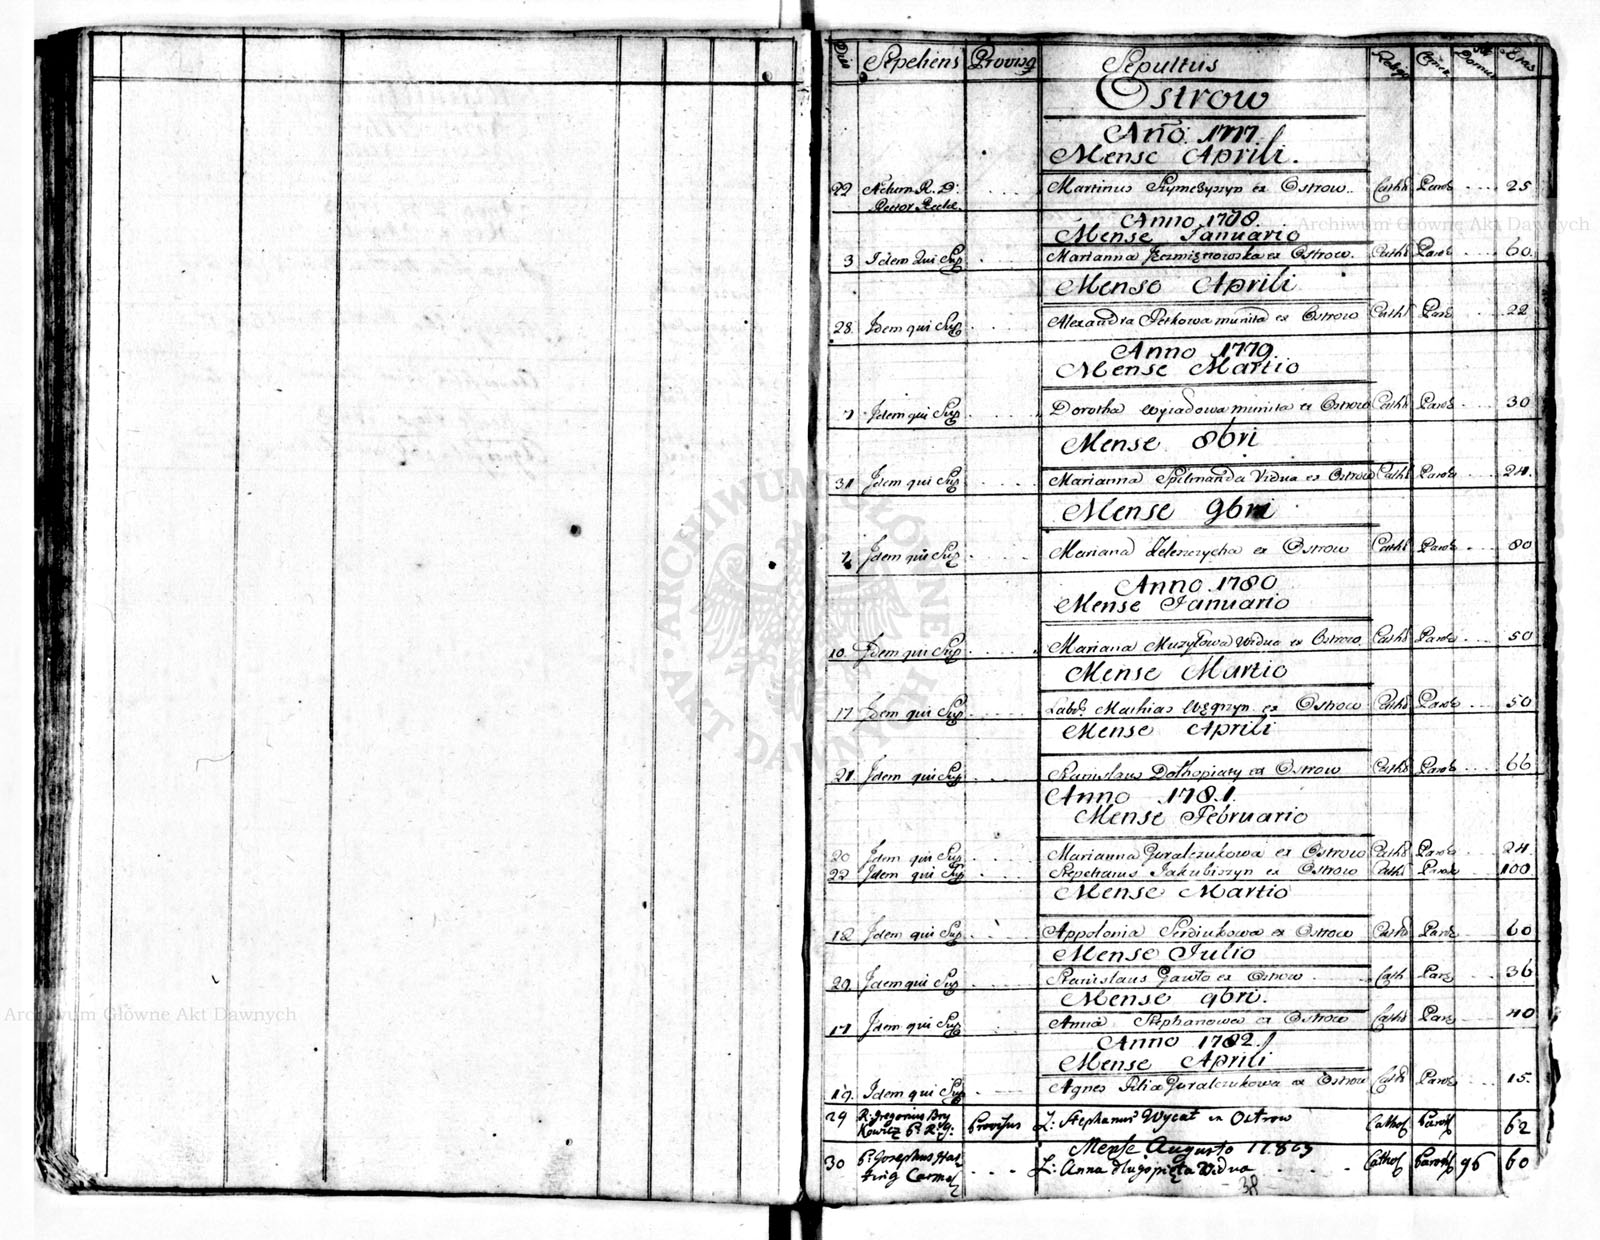 Dies Sepeliens Provisq Sepultus Religio Domus Etas
Ostrow
Año: 1777.
Mense Aprili.
22 R. D: Martinus ex Ostrow. Cath Paro 25
Rector Eccle.
Anno 1778.
Mense Ianuario
3 Idem Qui Sup Marianna ex Ostrow. Cath Paro 60.
Mense Aprili
28. Idem qui Sup Alexandra Petkowa munita ex Ostrow Cath Paro 22
Anno 1779.
Mense Martio
7 Idem qui Sup Dorotha Wyiadowa munita ex Ostrow Cath Paro 30
Mense 8bri
31 Idem qui Sup Marianna Vidua ex Ostrow Cath Paro 24.
Mense 9bri
Idem qui Sup Mariana ex Ostrow Cath Paro 80
Anno 1780
Mense Ianuario
10. Idem qui Sup Mariana Muzylowa Vidua ex Ostrow Cath Paro 50
Mense Martio
17 Idem qui Sup Lab. Mathias Węgrzyn ex Ostrow Cath Paro 50
Mense Aprili
21. Idem qui Sup Stanislaus Dołhopiaty ex Ostrow Cath Paro 66
Anno 1781.
Mense Februario
20 Idem qui Sup Marianna Guralczukowa ex Ostrow Cath Paro 24
22 Idem qui Sup Stephanus Jakubiszyn ex Ostrow Cath Paro 100
Mense Martio
12 Idem qui Sup Appolonia Serdiukowa ex Ostrow Cath Paro 60
Mense Julio
Idem qui Sup Stanislaus Gawło ex Ostrow Cath Paro 36
Mense 9bri.
Idem qui Sup Anna Stephanowa ex Ostrow Cath Par 40
Anno 1782.
Mense Aprili
19. Idem qui Sup Agnes Filia Guralczukowa ex Ostrow Cath Paro 15.
29 R: Gregorius Bry Provisus L: Stephanus Wycat ex Ostrow Cathol Paroch 62
kowicz
Mense Augusto
30 P: Josephus L: Anna długopięta Vidua Cathol Paroch 96 60
Carmel
38
Archiwum Główne Akt Dawnych
Archiwum Główne Akt Dawnych
ARCHIWUM GŁÓWNE AKT DAWNYCH